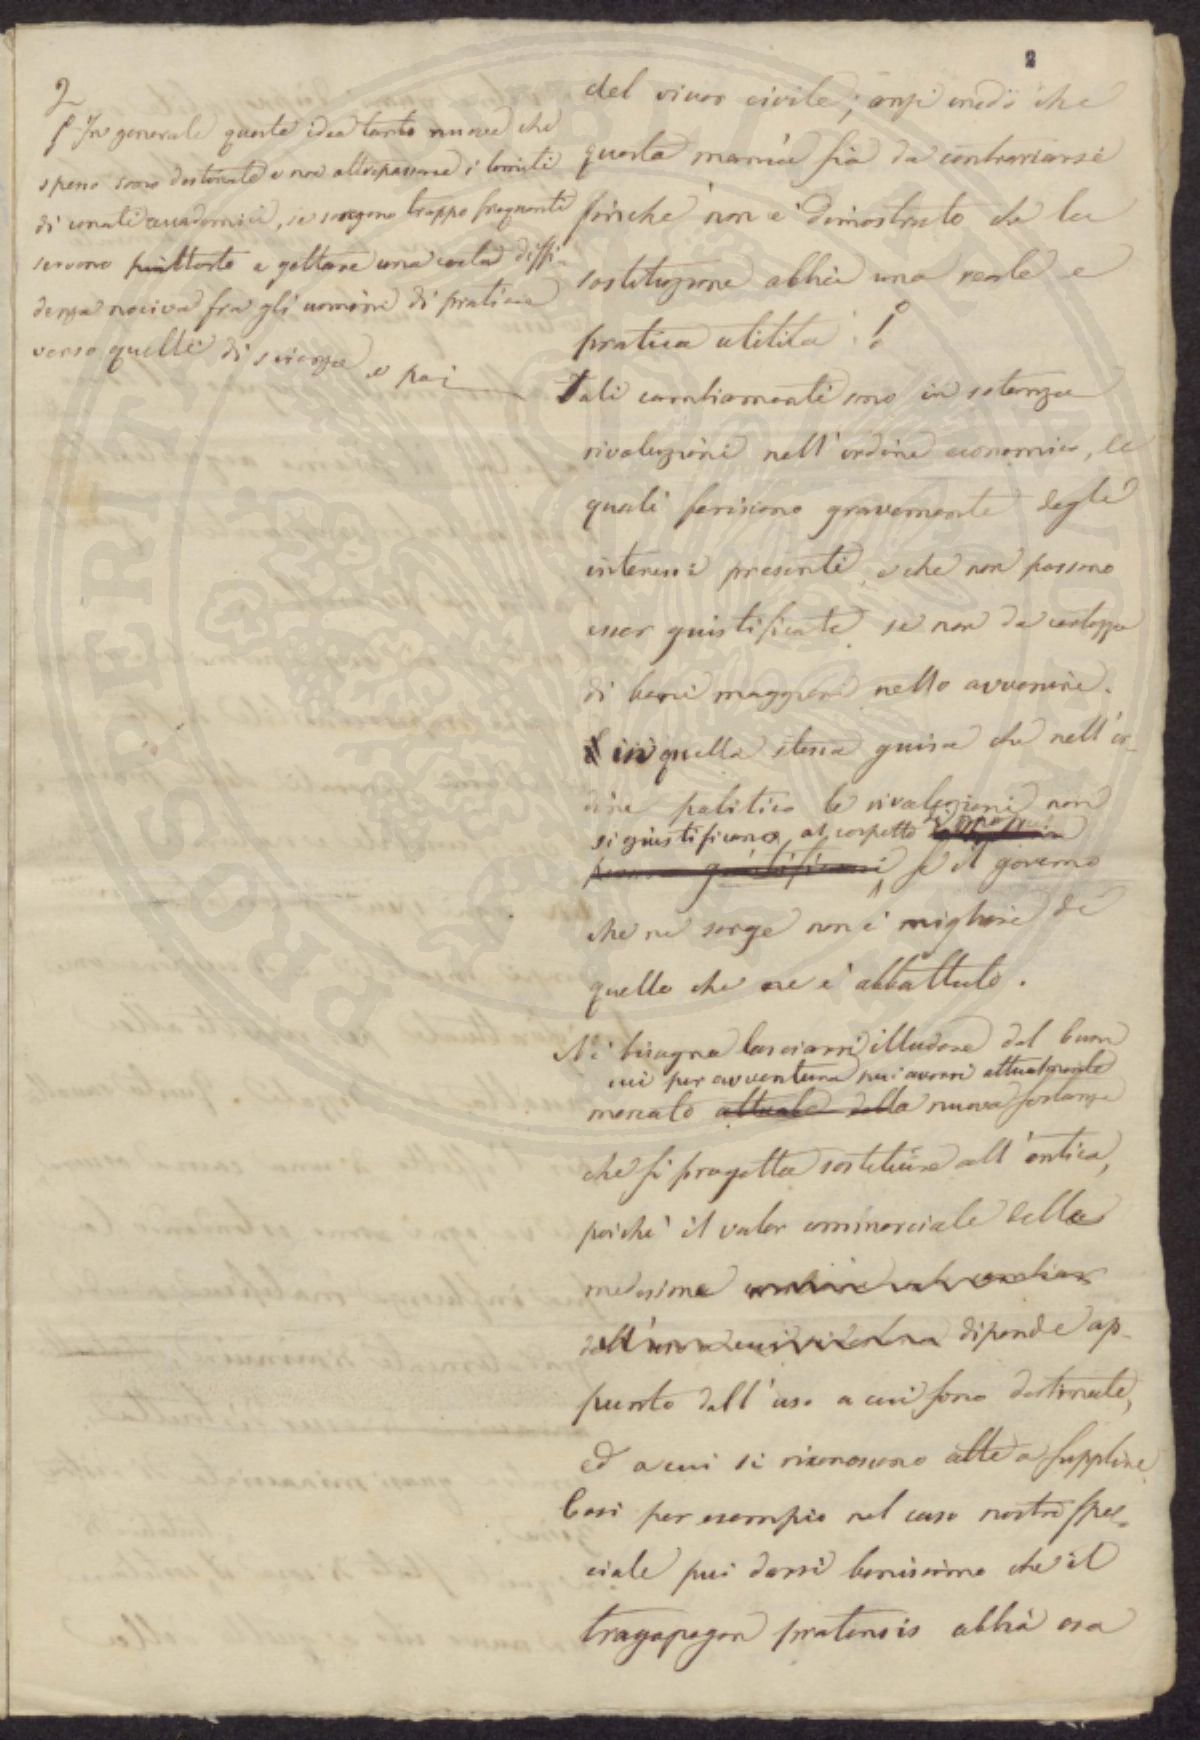 2
2
In generale queste idee tanto nuove che
spesso sono destinate a non oltrepassare i limiti
di conati accademici, se sorgono troppo frequenti
servono piuttosto a gettare una certa diffi-
denza nociva fra gli uomini di pratica
verso quelli di scienza e poi
del viver civile; anzi credo che
questa mania sia da contrariarsi
finchè non è dimostrato che la
sostituzione abbia una reale e
pratica utilità.
Tali cambiamenti sono in sostanza
rivoluzioni nell'ordine economico, le
quali feriscono gravemente degli
interessi presenti, e che non possono
esser giustificate se non da certezza
di beni maggiori nello avvenire.
in quella stessa guisa che nell'or-
dine politico le rivoluzioni non
si giustificano, al cospetto
se il governo
che ne sorge non è migliore di
quello che ne è abbattuto.
Nè bisogna lasciarsi illudere dal buon
cui per avventura può aversi attualmente
mercato attuale della nuova sostanza
che si progetta sostituire all'antica,
poichè il valor commerciale delle
medesime
dipende ap-
punto dall'uso a cui sono destinate,
ed a cui si riconoscono atte a supplire.
Così per esempio nel caso nostro spe-
ciale può darsi benissimo che il
tragopogon pratensis abbia ora